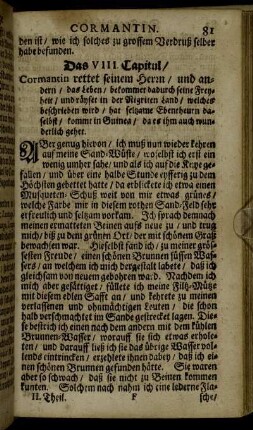 CORMANTIN. 81
den ist / wie ich solches zu grossem Verdruß selber
habe befunden.
Das VIII. Capitul /
Cormantin rettet seinem Herrn / und an-
dern / das Leben / bekommet dadurch seine Frey-
heit / und räyset in der Nigriten Land / welches
beschrieben wird / hat seltzame Ebentheurn da-
selbst / kommt in Guinea / da es ihm auch wun-
derlich gehet.
ABer genug hievon / ich muß nun wieder kehren
auf meine Sand-Wüste / woselbst ich erst ein
wenig umher sahe / und als ich auf die Knye ge-
fallen / und über eine halbe Stunde eyfferig zu dem
Höchsten gebettet hatte / da erblickete ich etwa einen
Musqueten-Schuß weit von mir etwas grünes /
welche Farbe mir in diesem rothen Sand-Feld sehr
erfreulich und seltzam vorkam. Ich sprach demnach
meinen ermatteten Beinen aufs neue zu / und trug
mich / biß zu dem grünen Ort / der mit schönem Graß
bewachsen war. Hieselbst fand ich / zu meiner grös-
sesten Freude / einen schönen Brunnen süssen Was-
sers / an welchem ich mich dergestalt labete / daß ich
gleichsam von neuem gebohren ward. Nachdem ich
mich aber gesättiget / füllete ich meine Filtz-Mütz
mit diesem edlen Safft an / und kehrete zu meinen
verlassenen und ohnmächtigen Leuten / die schon
halb verschmachtet im Sande gestrecket lagen. Die-
se bestrich ich einen nach dem andern mit dem kühlen
Brunnen-Wasser / worauf sie sich etwas erhole-
ten / und darauff ließ ich sie das übrige Wasser vol-
lends eintrincken / erzehlete ihnen dabey / daß ich ei-
nen schönen Brunnen gefunden hätte. Sie waren
aber so schwach / daß sie nicht zu Beinen kommen
kunten. Solchem nach nahm ich eine lederne Fla-
II. Theil. F sche /